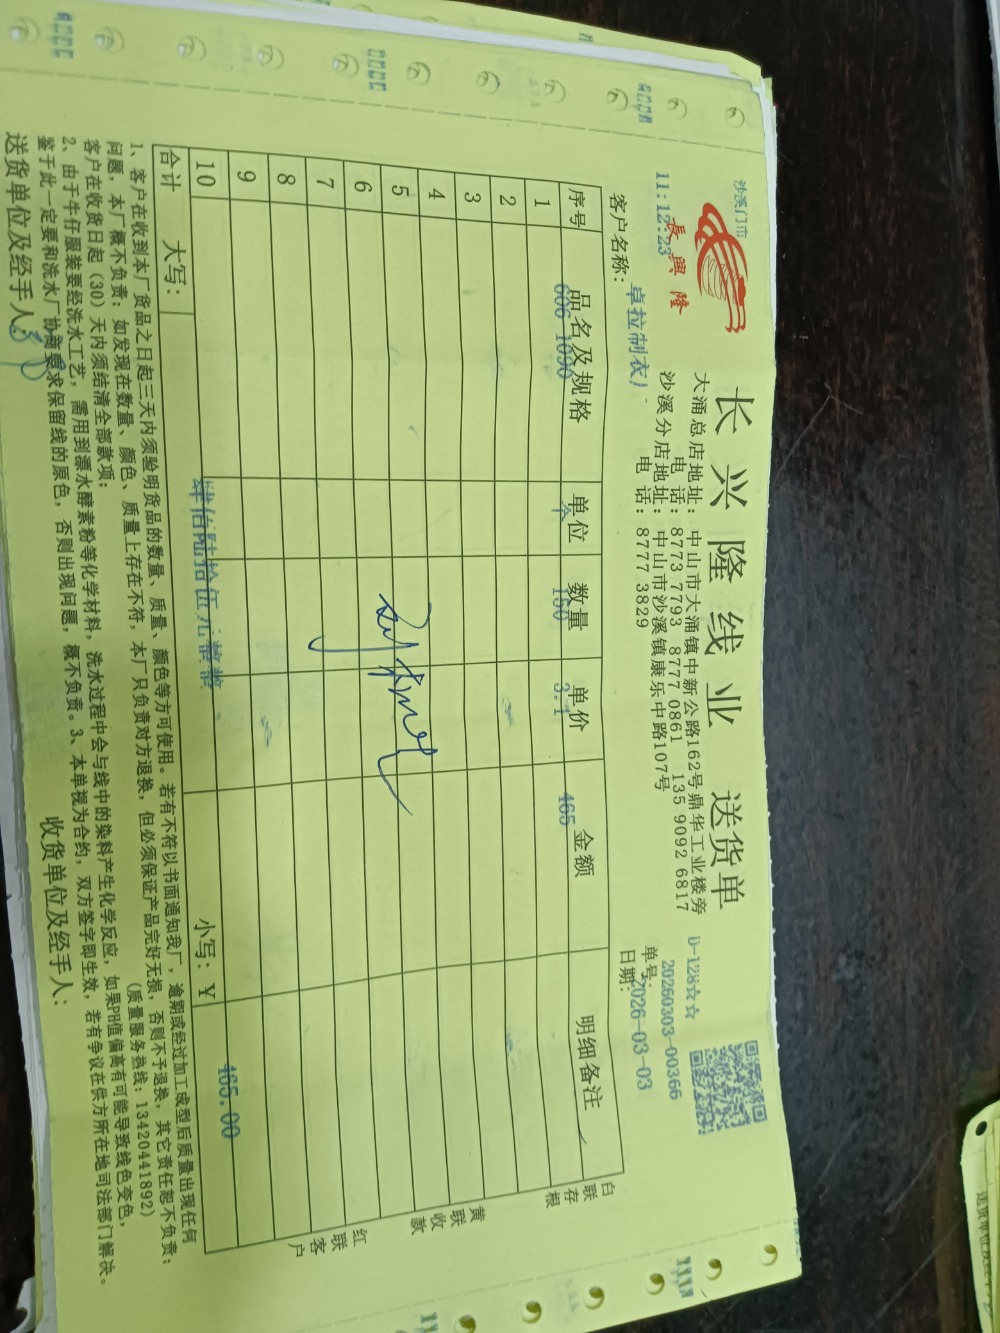 沙溪门市
長興隆
11:12:23
长兴隆线业 送货单
大涌总店地址：中山市大涌镇中新公路162号鼎华工业楼旁
电 话：8773 7793 8777 0861 135 9092 6817
沙溪分店地址：中山市沙溪镇康乐中路107号
电 话：8777 3829
D-128☆☆
单号：20260303-00366
日期：2026-03-03
客户名称：卓拉制衣厂
序号 品名及规格 单位 数量 单价 金额 明细备注
1 606 1090 个 150 3.1 465
2
3
4
5
6
7
8
9
10
合计 大写： 肆佰陆拾伍元整整 小写：￥ 465.00
白联存根
黄联收款
红联客户
(质量服务热线：13420441892)
1、客户在收到本厂货品之日起三天内须验明货品的数量、质量、颜色等方可使用。若有不符以书面通知我厂，逾期或经过加工成型后质量出现任何
问题，本厂概不负责；如发现在数量、颜色、质量上存在不符，本厂只负责对方退换，但必须保证产品完好无损，否则不予退换，其它责任恕不负责；
客户在收货日起（30）天内须结清全部款项；
2、由于牛仔服装要经洗水工艺，需用到漂水酵素粉等化学材料，洗水过程中会与线中的染料产生化学反应，如果PH值偏高有可能导致线色变色，
鉴于此一定要和洗水厂协商要求保留线的原色，否则出现问题，概不负责。3、本单视为合约，双方签字即生效，若有争议在供方所在地司法部门解决。
送货单位及经手人： 收货单位及经手人：